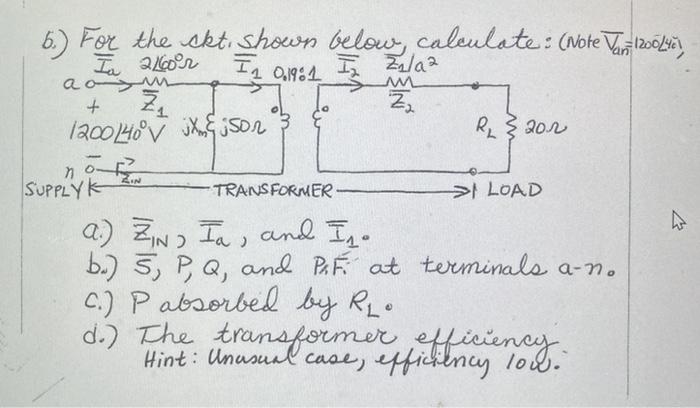 6.) For the ckt. shown below, calculate: (Note V̅an=1200∠40°)
I̅a 2∠60°Ω I̅1 0.19:1 I̅2 Z̅1/a²
a
+ Z̅1 Z̅2
1200∠40°V jXm j50Ω RL 20Ω
n - Z̅IN
SUPPLY TRANSFORMER LOAD
a.) Z̅IN, I̅a, and I̅1.
b.) S̅, P, Q, and P.F. at terminals a-n.
c.) P absorbed by RL.
d.) The transformer efficiency.
Hint: Unusual case, efficiency low.